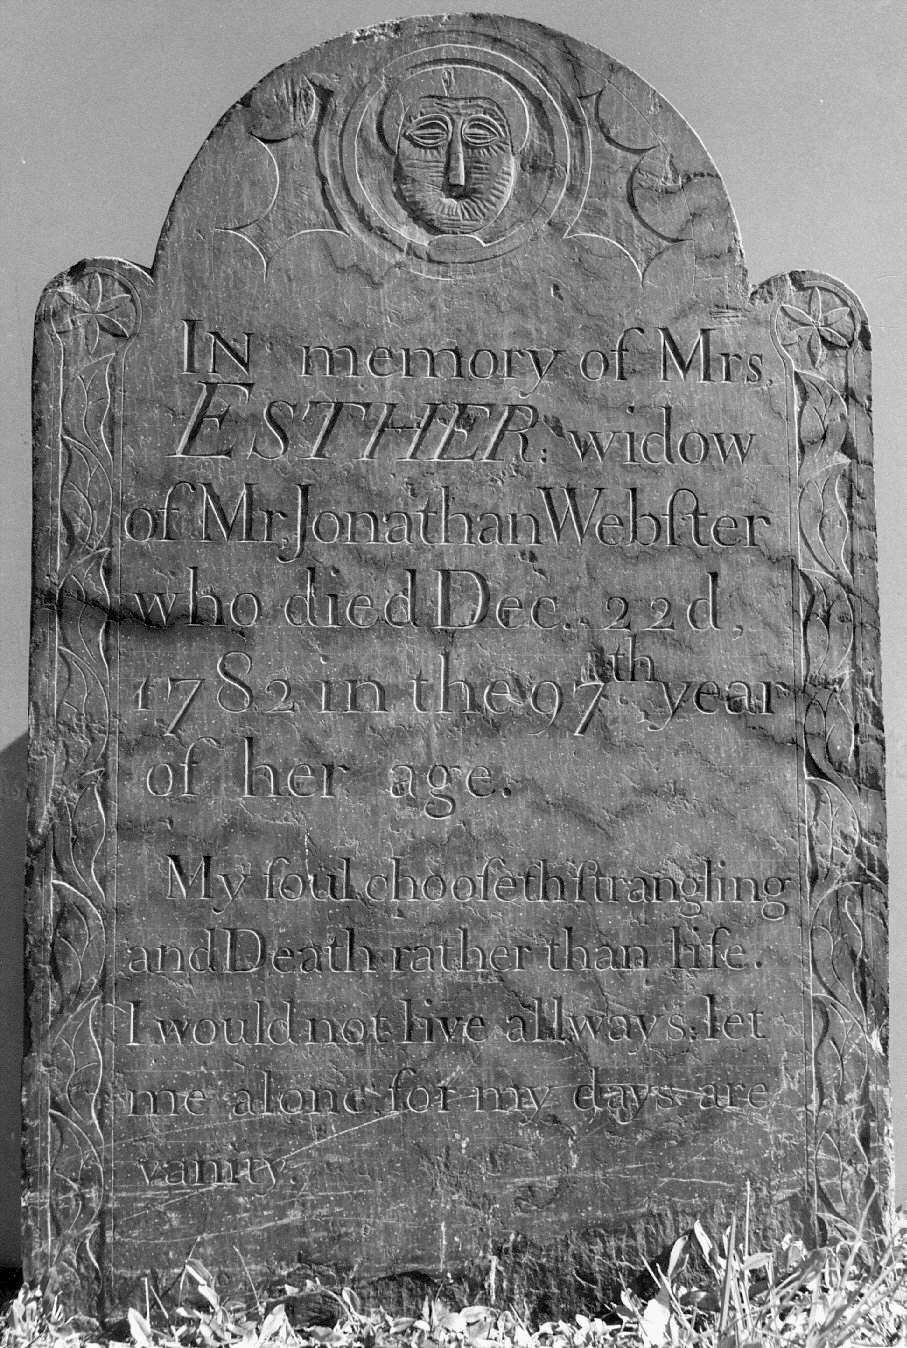 IN memory of Mrs
ESTHER, widow
of Mr Jonathan Webſter
who died Dec. 22d,
1782 in the 97.th year
of her age.
My ſoul chooſeth ſtrangling
and Death rather than life.
I would not live allways: let
me alone, for my days are
vanity